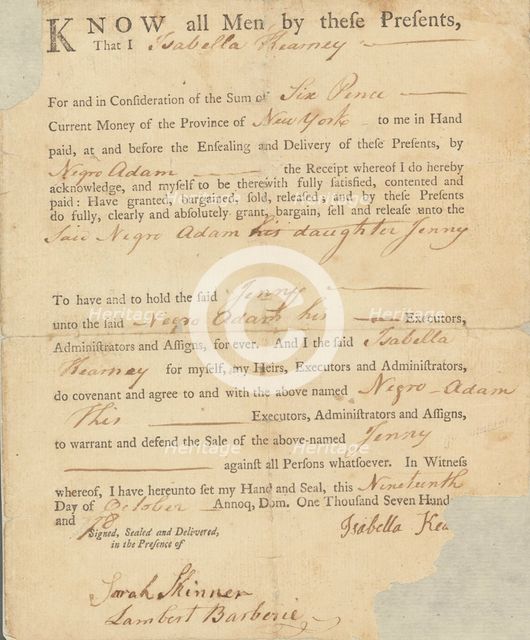 KNOW all Men by theſe Preſents,
That I Isabella Kearney
For and in Conſideration of the Sum of Six Pence
Current Money of the Province of New York to me in Hand
paid, at and before the Enſealing and Delivery of theſe Preſents, by
Negro Adam the Receipt whereof I do hereby
acknowledge, and myſelf to be therewith fully ſatisfied, contented and
paid: Have granted, bargained, ſold, releaſed; and by theſe Preſents
do fully, clearly and abſolutely grant, bargain, ſell and releaſe unto the
Said Negro Adam his daughter Jenny
To have and to hold the ſaid Jenny
unto the ſaid Negro Adam his Executors,
Adminiſtrators and Aſſigns, for ever. And I the ſaid Isabella
Kearney for myſelf, my Heirs, Executors and Adminiſtrators,
do covenant and agree to and with the above named Negro-Adam
his Executors, Adminiſtrators and Aſſigns,
to warrant and defend the Sale of the above-named Jenny
againſt all Perſons whatſoever. In Witneſs
whereof, I have hereunto ſet my Hand and Seal, this Nineteenth
Day of October Annoq, Dom. One Thouſand Seven Hund
and 78
Signed, Sealed and Delivered,
in the Preſence of
Isabella Kea
Sarah Skinner
Lambert Barberie
Heritage Heritage
Images Images
Heritage Heritage
Images Images